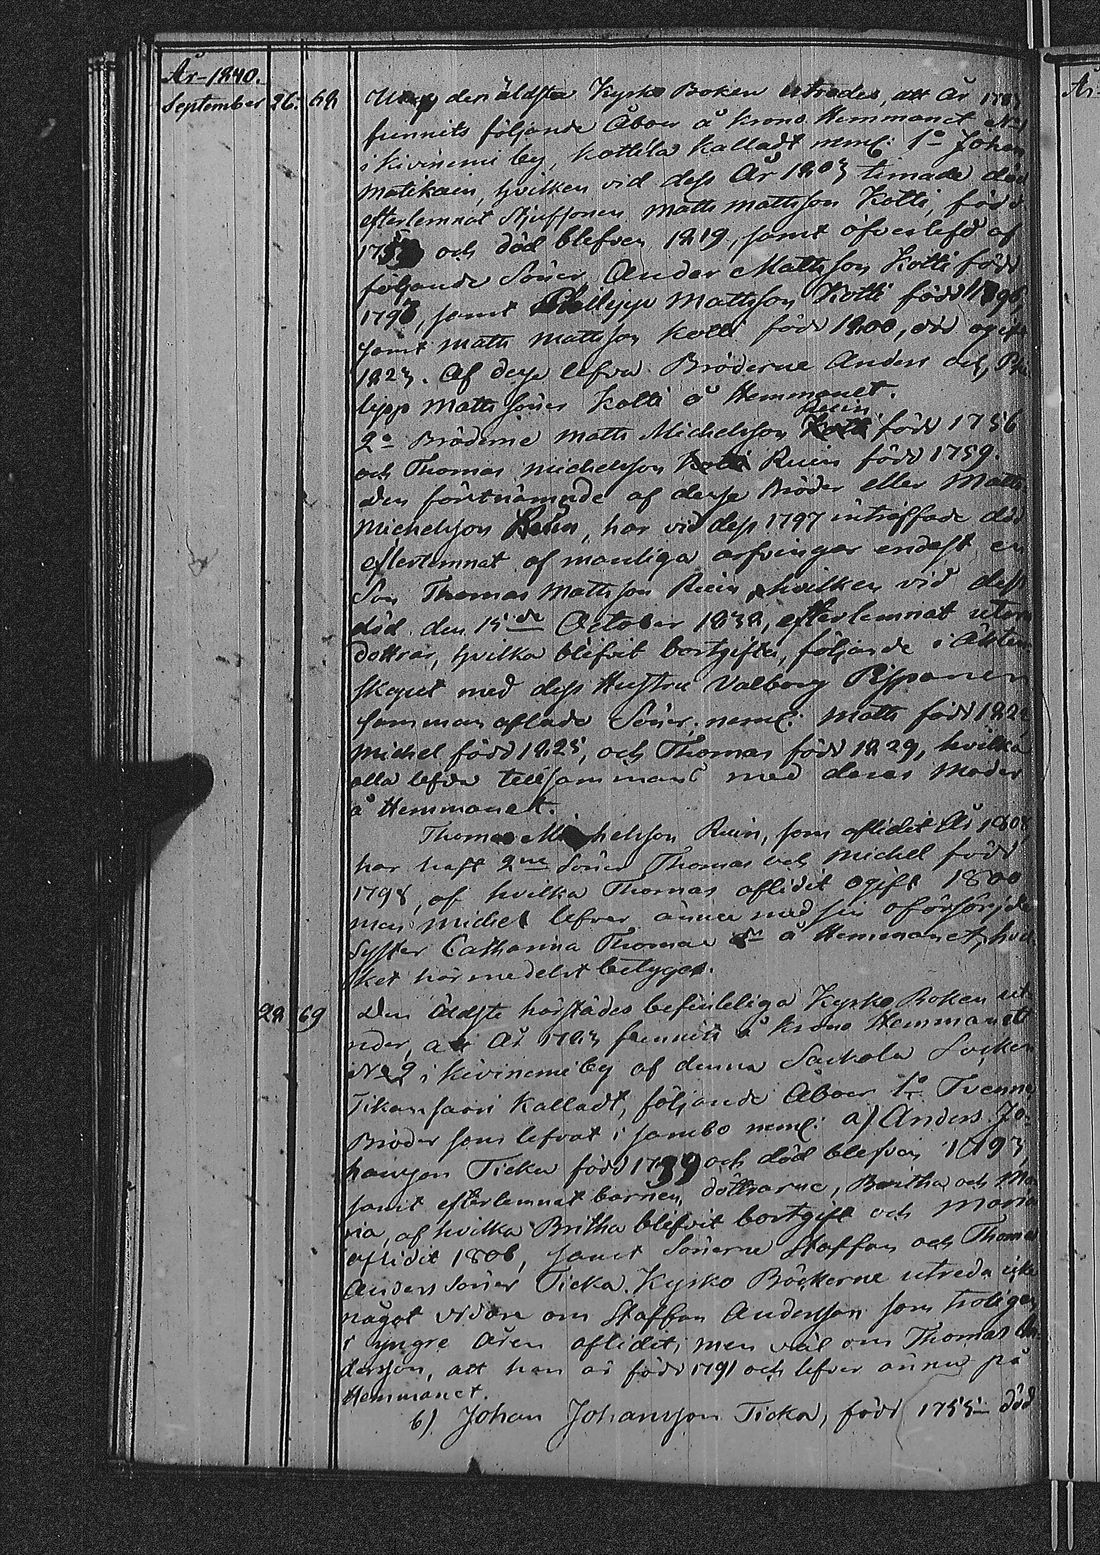 År 1840.
September 26. 68 Utaf den äldsta Kyrko Boken utredes, att År 1783
funnits följande Åboer å Krono Hemmanet No 1
i Kiviniemi by, Kottila kalladt neml: 1o Johan
Matikain, hvilken vid dess År 1803 timade död
efterlemnat Styfsonen Matts Mattsson Kotti, född
och död blefven 1819, samt öfverlefd af
följande Söner, Anders Mattsson Kotti född
1793, samt Philipp Mattsson Kotti född 1796,
samt Matts Mattsson Kotti född 1800, död ogift
1823. Af desse lefva Bröderne Anders och Phi
lipp Matts Söner Kotti å Hemmanet.
Ruin
2o Bröderne Matts Michelsson född 1756
och Thomas Michelsson Ruin född 1759.
Den förstnämnde af desse Bröder eller Matts
Michelsson Ruin, har vid dess 1797 inträffade död
efterlemnat af manliga arfvingar endast en
Son Thomas Mattsson Ruin, hvilken vid dess
död den 15de October 1838, efterlemnat utom
dottrar, hvilka blifvit bortgifta, följande i Äkten
skapet med dess Hustru Valborg Pispanen
samman aflade Söner, neml: Matts född 1822
Michel född 1825, och Thomas född 1829, hvilka
alla lefva tillsammans med deras Moder
å Hemmanet.
Thomas Michelsson Ruin, som aflidit År 1808
har haft 2ne Söner Thomas och Michel född
1798, af hvilka Thomas aflidit ogift 1800
men Michel lefver ännu med sin oförsörjde
Syster Catharina Thomae dr å Hemmanet, hvil
ket härmedelst betygas.
28 69 Den äldste härstädes befintliga Kyrko Boken ut
reder, att År 1783 funnits å Krono Hemmanet
No 2 i Kiviniemi by af denna Sackola Socken
Tikansaari kalladt, följande Åboer 1o Tvenne
Bröder som lefvat i sambo neml: a) Anders Jo-
hansson Ticka född 1739 och död blefven 1793,
samt efterlemnat barnen, döttrarne, Britha och Ma
ria, af hvilka Britha blifvit bortgift och Maria
aflidit 1806, samt Sönerne Staffan och Thomas
Anders Söner Ticka. Kyrko Böckerne utreda icke
något vidare om Staffan Andersson som troligen
i yngre åren aflidit, men väl om Thomas An-
dersson, att han är född 1791 och lefver ännu på
Hemmanet.
b) Johan Johansson Ticka, född 1755 död
År